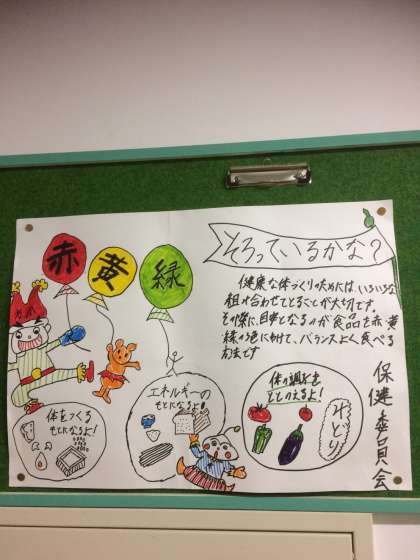 そろっているかな？
赤
黄
緑
健康な体づくりのためには、いろいろな
組み合わせてとることが大切です。
その際に、目安となるのが食品を赤・黄・
緑の3色にわけて、バランスよく食べる
方法です
体をつくる
もとになるよ！
エネルギーの
もとになるよ！
体の調子を
ととのえるよ！
みどり
保健委員会